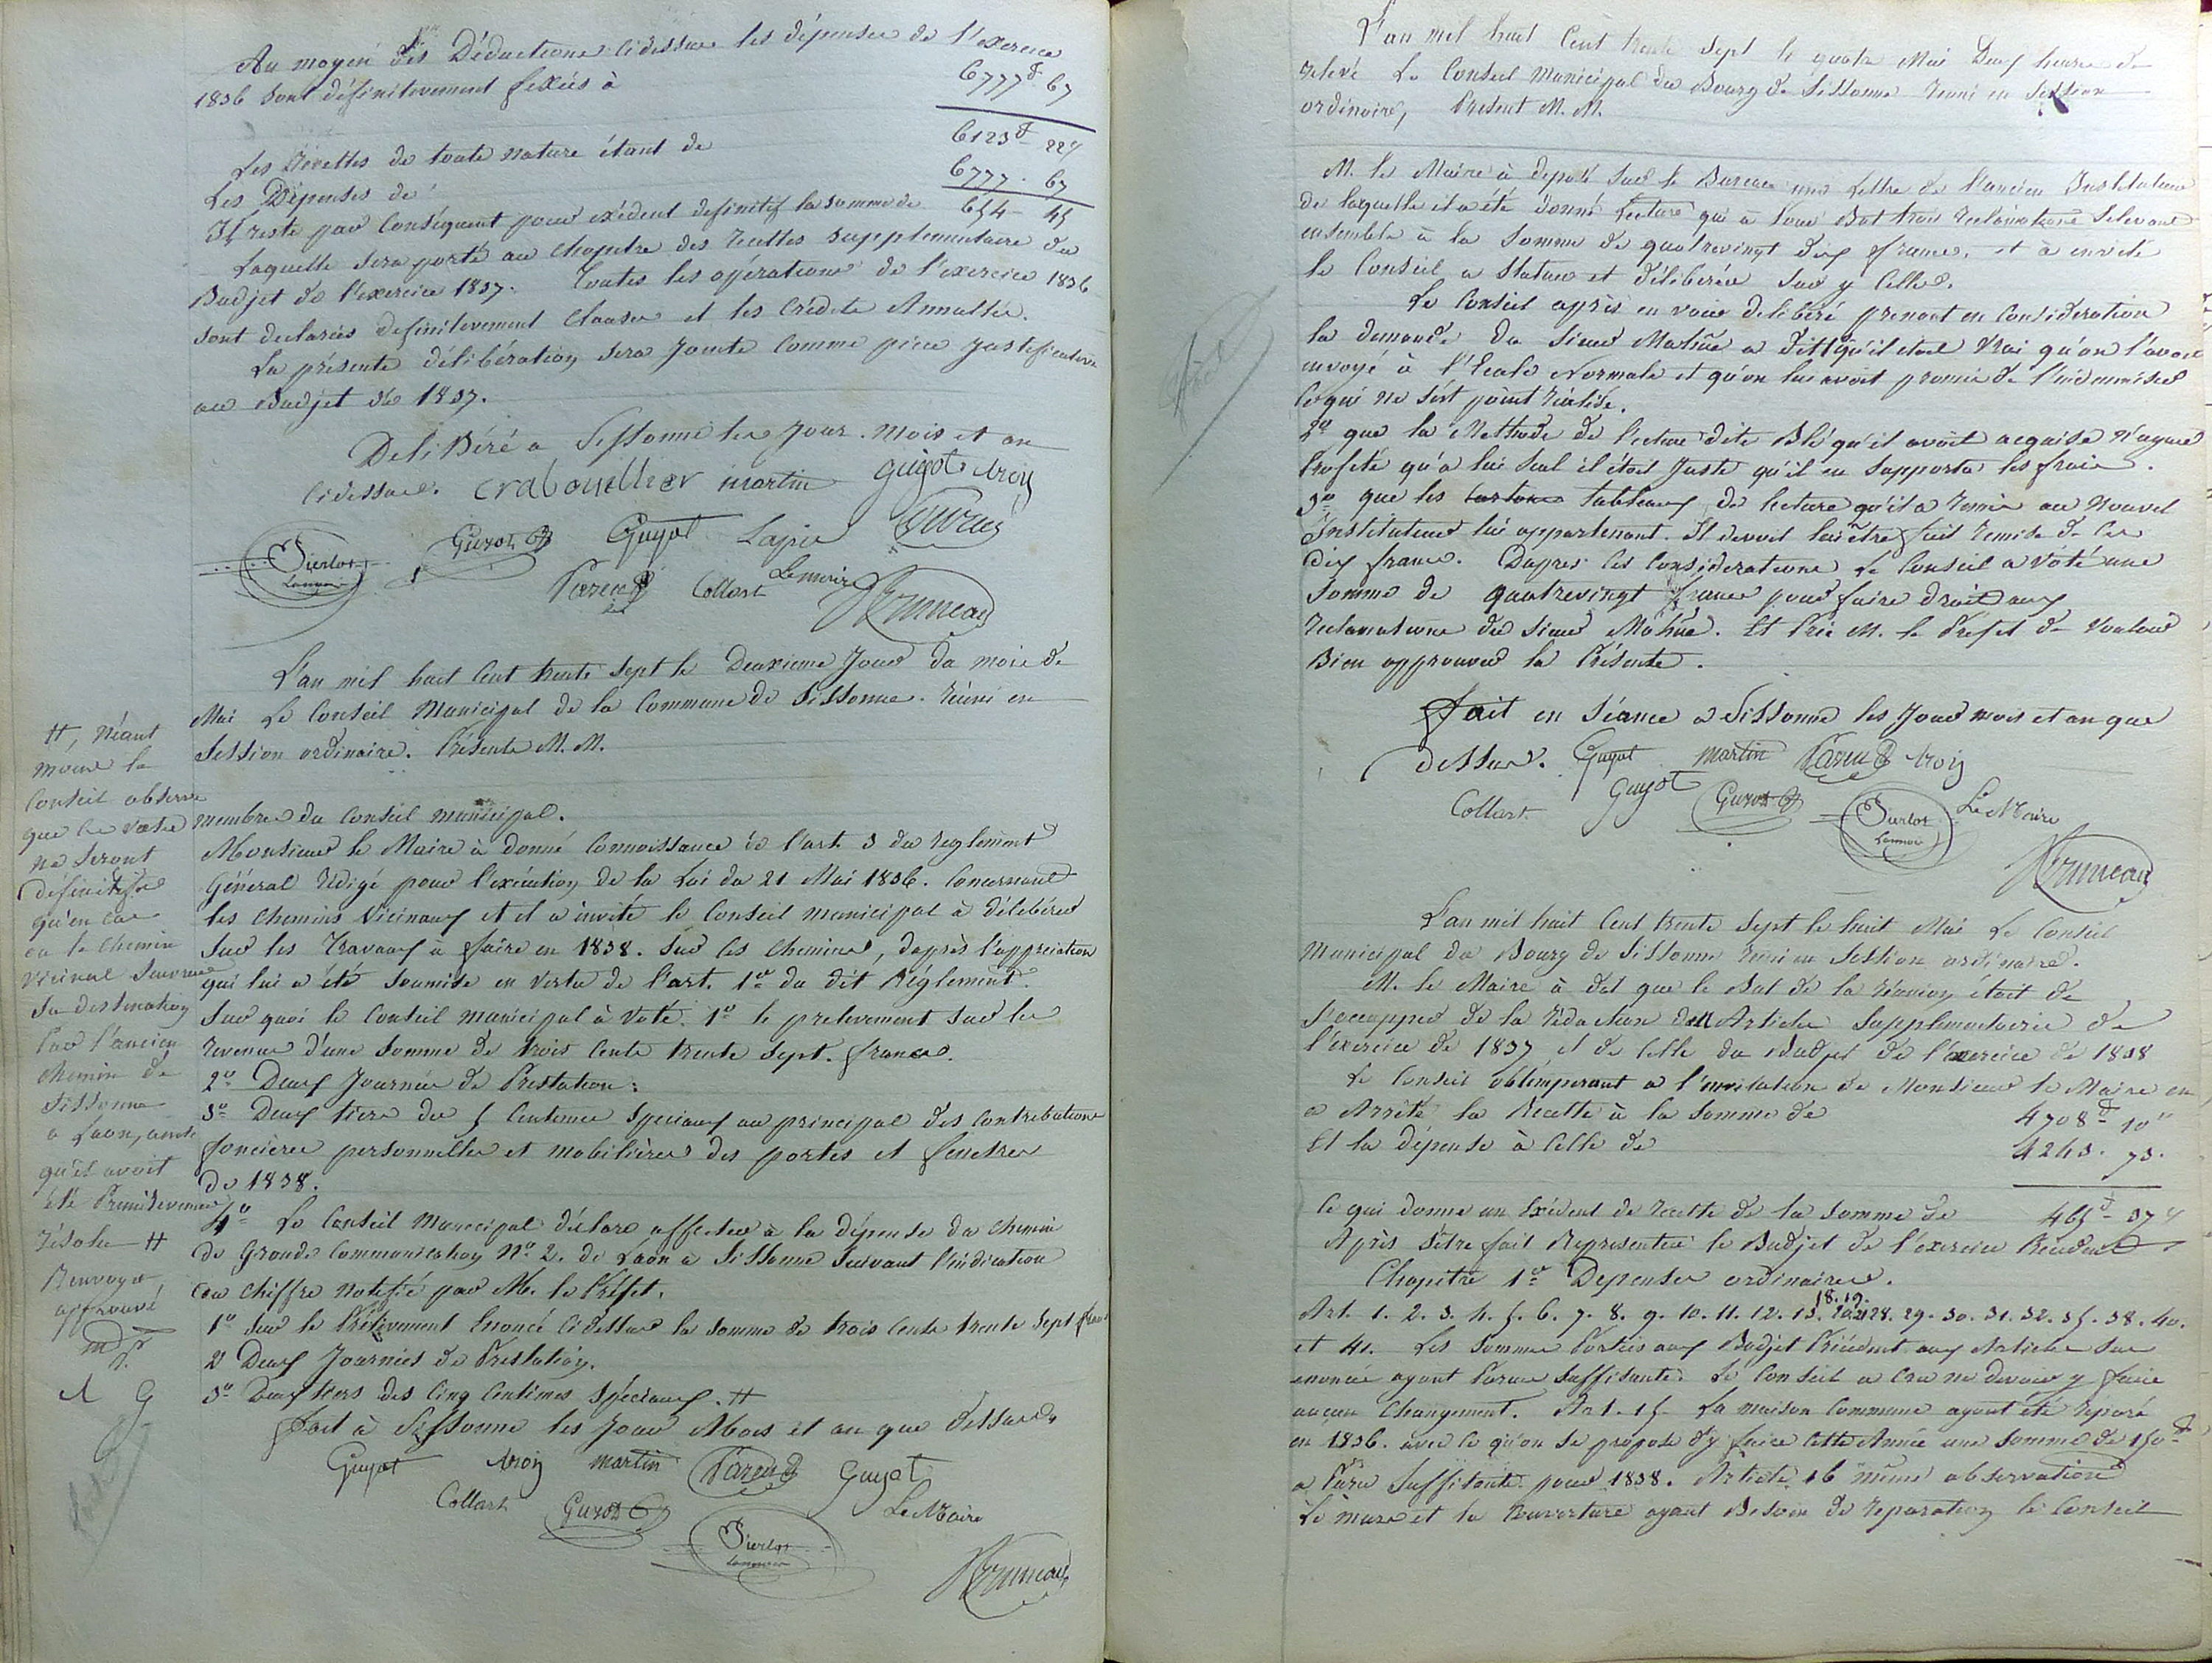 Au moyen des Déductions cidessus les dépenses de l'exercice
1836 sont définitivement fixées à 6777f 67
Les Recettes de toute nature étant de 6123f 22
Les Dépenses de 6777. 67
Il reste par Conséquent pour exédent definitif la somme de 654- 45
Laquelle sera porté au chapitre des recettes supplementaire du
Budjet de l'exercice 1837. Toutes les opérations de l'exercice 1836
sont declarées definitivement Clauses et les Crédits Annullés.
La présente délibération sera Jointe Comme piece Justificative
au Budjet de 1837.
DeliBéré a Sissonne les Jour. mois et an
cidessus. Crabouillier martin guyot Aroy
Sierlot Lannois Guyot Guyot Lapie
Parent Collart Le maire Bruneau
L'an mil huit Cent trente sept le Deuxieme Jour du mois de
Mai Le Conseil Municipal de la Commune de Sissonne. réuni en
Session ordinaire. Présents M. M.
membres du Conseil municipal.
Monsieur le Maire à donné Connoissance de l'art. 3 du reglement
Général rédigé pour l'exécution de la Loi du 21 Mai 1836. Concernant
les chemins Vicinaux et il a invité le Conseil municipal à délibérer
Sur les travaux à faire en 1838. sur ces chemins, daprès l'appreciation
qui lui a été soumise en vertu de l'art. 1er du dit Réglement.
Sur quoi le Conseil municipal à voté. 1o le prelevement sur les
revenus d'une somme de trois Cents trente sept. francs.
2o Deux Journées de Prestation:
3o Deux tiers des 5 Centimes speciaux au principal des Contributions
foncières personnelles et mobilières des portes et fenetres
de 1838.
4o Le Conseil Municipal déclare affecter à la dépense du chemin
de Grande Communication No 2. de Laon a Sissonne suivant l'indication
du chiffre notifié par M. le Préfet.
1o Sur le Prélévement énoncé cidessus la somme de trois Cents trente sept francs
2o Deux Journées de Prestation.
3o Deux tiers des Cinq Centimes spéciaux. #
fait à Sissonne les Jour Mois et an que dessus
Guyot Aroy martin Parent Guyot
Collart Guyot Le Maire
Sierlot Lannois
Bruneau
#, néant
moins le
Conseil observe
que ces votes
ne seront
définitifs
qu'en cas
ou le chemin
vicinal suivrait
sa destination
par l'ancien
chemin de
Sissonne
a Laon, ainsi
qu'il avoit
été Primitivement
résolu #
Renvoyer
approuvé
A G
L'an mil huit Cent trente Sept le quatre Mai Deux heures de
relevé Le Conseil Municipal du Bourg de Sissonne réuni en Session
ordinaire, Présent M. M.
M. le Maire à deposé sur le Bureau une Lettre de l'ancien Instituteur
de laquelle il a été donné Lecture qui a pour But trois reclamations s'elevant
ensemble à la somme de quatrevingt dix francs, et à invité
le Conseil a statuer et délibérer sur y Celles.
Le Conseil après en voir deliberé prenant en Considération
la demande du sieur Mahue a Dit qu'il etoit Vrai qu'on l'avoit
envoyé à l'Ecole Normale et qu'on lui avoit promis de l'indemniser
Ce qui ne s'est point réalisé.
2o que la Méthode de lecture dite Blé qu'il avoit acquise n'ayant
Profité qu'a lui seul il étoit Juste qu'il en supporta les frais.
3o que les cartons tableaux de lecture qu'il a remis au nouvel
Instituteur lui appartenant. Il devoit lui être fait remise de ces
dix francs. Dapres ces Considerations Le Conseil a Voté une
Somme de quatrevingt francs pour faire droit aux
reclamations du sieur Mahue. Et Prie M. le Prefet de vouloir
Bien approuver la Présente.
fait en Séance a Sissonne les Jour mois et an que
dessus. Guyot martin Parent Aroy
Collart Guyot Guyot Sierlot Lannois Le Maire
Bruneau
L'an mil huit Cent trente sept le huit Mai Le Conseil
Municipal du Bourg de Sissonne réuni en Session ordinaire.
M. le Maire à dit que le But de la réunion étoit de
s'occupper de la rédaction des Articles Supplementaires de
l'exercice de 1837 et de Celle du Budjet de l'exercice de 1838
Le Conseil obtemperant a l'invitation de Monsieur le Maire en
a Arrêté la Recette à la Somme de 4708f 10
Et la dépense à Celle de 4243. 73.
Ce qui donne un Exédent de recette de la somme de 465f 37
Après s'être fait Representer le Budjet de l'exercice Précédent
Chapitre 1er Depenses ordinaires.
18. 19.
Art. 1. 2. 3. 4. 5. 6. 7. 8. 9. 10. 11. 12. 13. 28. 29. 30. 31. 32. 35. 38. 40.
et 41. Les Sommes Portées aux Budjet Précédent aux Articles sus
enoncés ayant Parues suffisantes Le Conseil a Cru ne devoir y faire
aucun Changement. Art. 15 La maison Commune ayant été reparé
en 1836. avec ce qu'on se propose d'y faire cette Année une somme de 150f
a Paru suffisante pour 1838. Article 16 même observation
Le mur et la Couverture ayant Besoin de reparation le Conseil